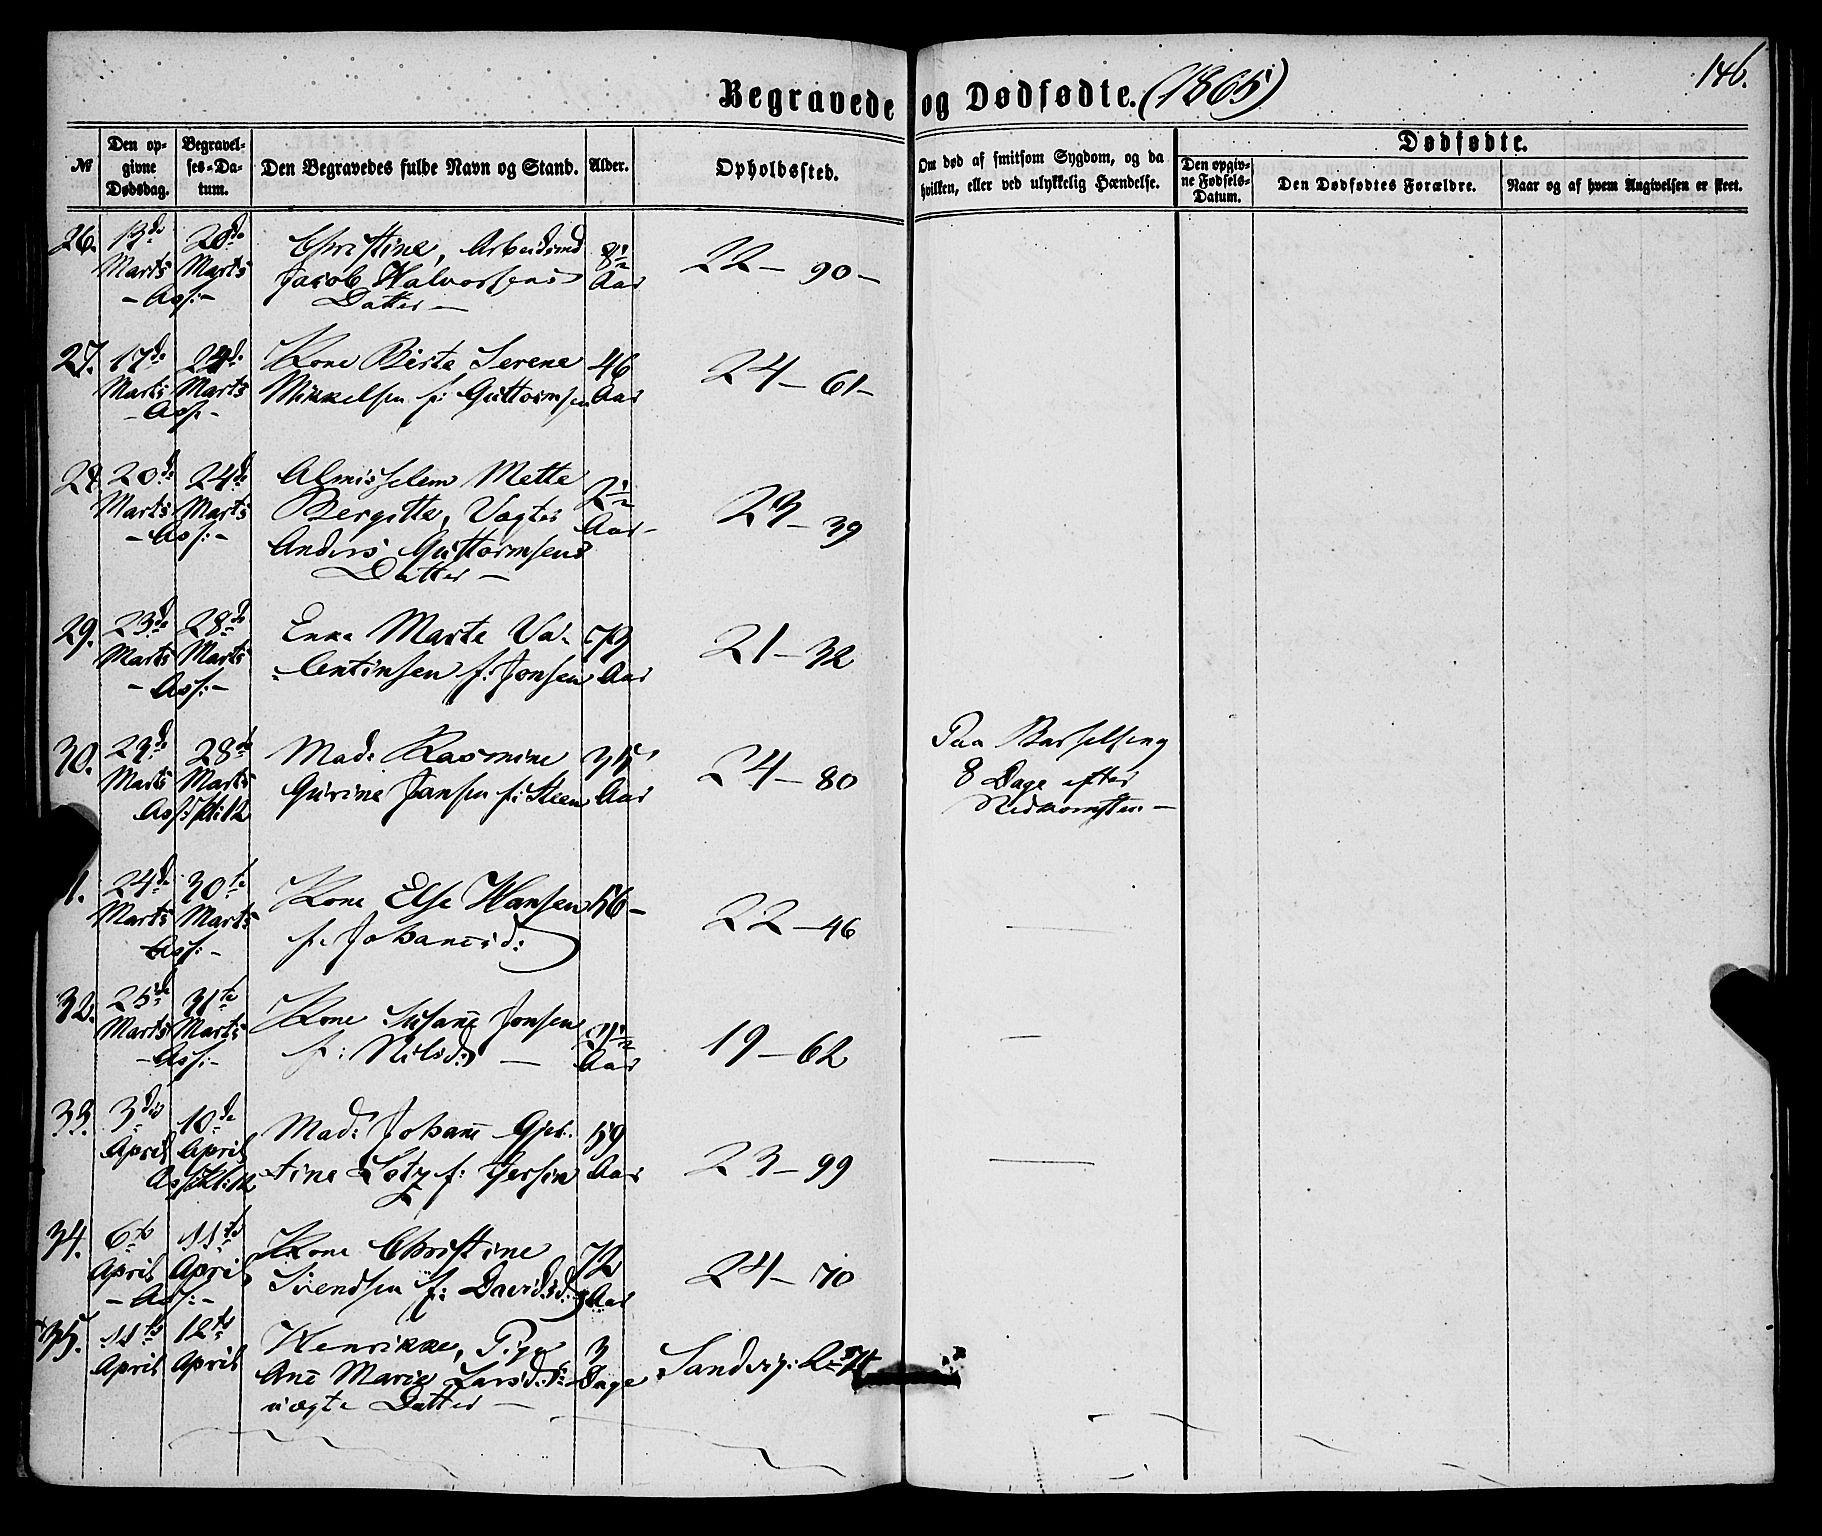 146.
Begravede og Dødfødte. (1865)
№
Den opgivne Dødsdag.
Begravelses-Datum.
Den Begravedes fulde Navn og Stand.
Alder.
Opholdssted.
Om død af smitsom Sygdom, og da hvilken, eller ved ulykkelig Hændelse.
Dødfødte.
Den opgivne Fødsels-Datum.
Den Dødfødtes Forældre.
Naar og af hvem Angivelsen er skeet.
26. 13de 20de Christine, Arbeidsmd 8½ 22 - 90 -
Marts Marts Jacob Halvorsens Aar
- Ass: - Datter -
27. 17de 24de Kone Berte Serene 46 24 - 61 -
Marts Marts Mikkelsen f: Guttormsen Aar
- Ass: -
28. 20de 24de Mette 2½ 23 - 39
Marts Marts Bergitte, Vægter Aar -
- Ass: - Anders Guttormsens
Datter -
29. 23de 28de Enke Marte Va- 79 21 - 32
Marts Marts lentinsen f: Jonsen Aar
- Ass: -
30. 23de 28de Mad: Rasmine 35 24 - 80 Paa Barselseng
Marts Marts Gurine Jansen f: Steen Aar 8 Dage efter
Ass: Kl: 12 Nedkomsten. -
1. 24de 30te Kone Else Hansen 56 - 22 - 46
Marts Marts f: Johanesd:
Ass: -
32. 25de 31te Kone Susane Jonsen 31½ 19 - 62
Marts Marts f: Nilsd: - Aar
- Ass: -
33. 3die 10de Mad: Johane Gjer- 59 23 - 99
April April tine Lotz f: Aar
Ass: Kl: 12
34. 6te 11te Kone Christine 72 24 - 70
April April Svendsen f: Davidsd: Aar
- Ass: -
35. 11te 12te Henrikke, Pige 3 Sandvig:
April April Ane Marie Larsd: Dage
uægte Datter -